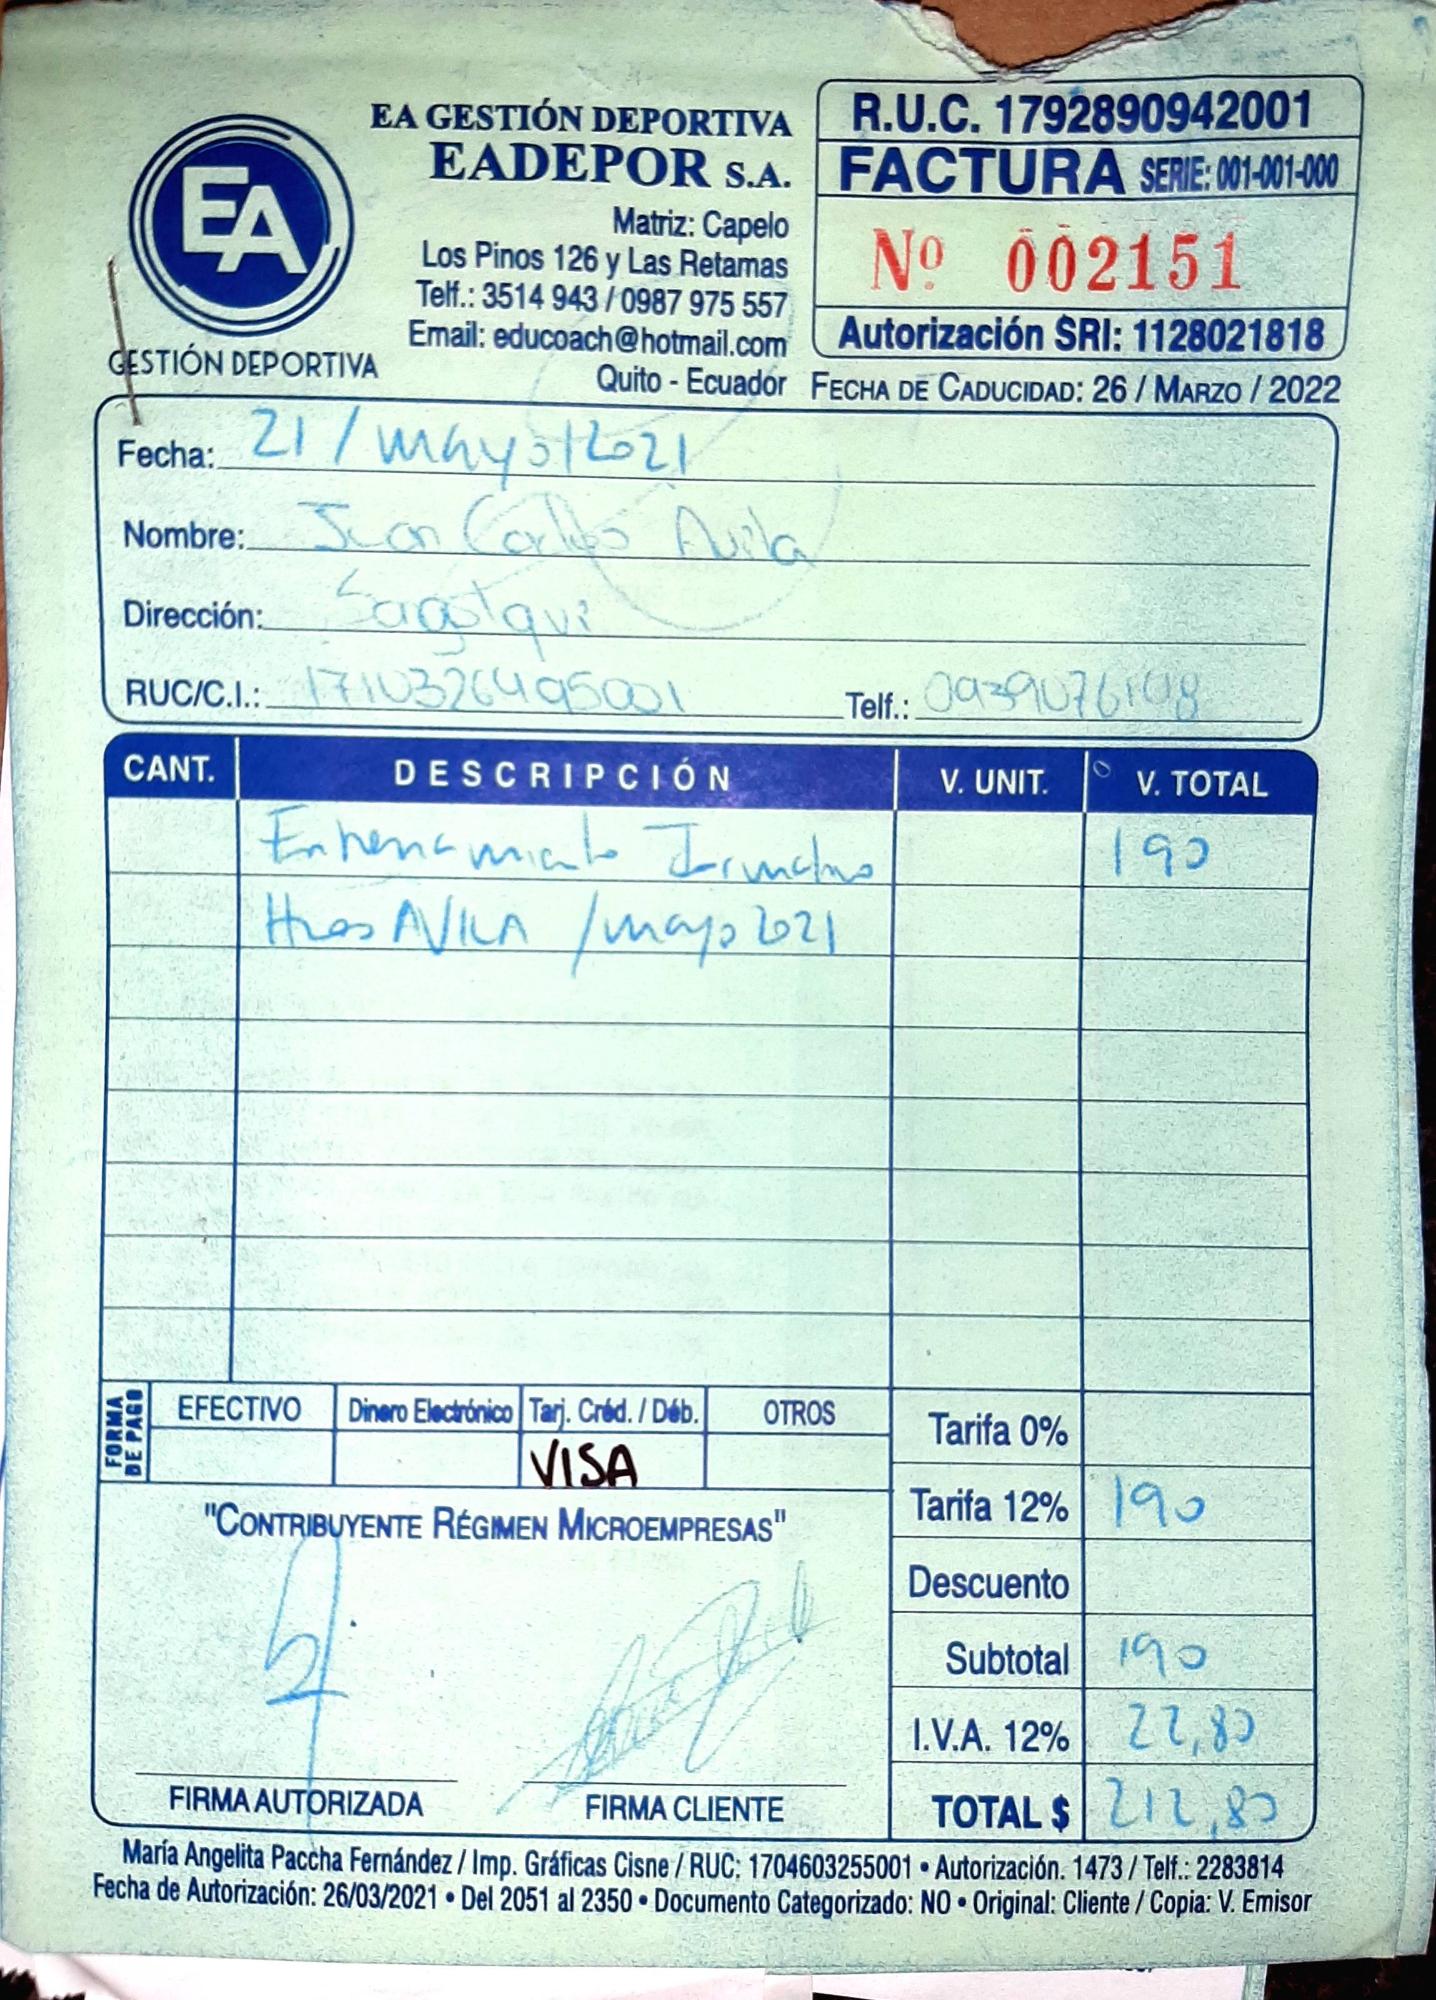 EA
GESTIÓN DEPORTIVA
EA GESTIÓN DEPORTIVA
EADEPOR S.A.
Matriz: Capelo
Los Pinos 126 y Las Retamas
Telf.: 3514 943 / 0987 975 557
Email: educoach@hotmail.com
Quito - Ecuador
R.U.C. 1792890942001
FACTURA SERIE: 001-001-000
Nº 002151
Autorización SRI: 1128021818
FECHA DE CADUCIDAD: 26 / MARZO / 2022
Fecha: 21/mayo/2021
Nombre: Juan Carlos Avila
Dirección:
RUC/C.I.: Telf.:
CANT. DESCRIPCIÓN V. UNIT. V. TOTAL
190
AVILA /mayo 2021
FORMA DE PAGO
EFECTIVO Dinero Electrónico Tarj. Créd. / Déb. OTROS
VISA
Tarifa 0%
Tarifa 12% 190
Descuento
Subtotal 190
I.V.A. 12% 22,80
TOTAL $ 212,80
"CONTRIBUYENTE RÉGIMEN MICROEMPRESAS"
FIRMA AUTORIZADA FIRMA CLIENTE
María Angelita Paccha Fernández / Imp. Gráficas Cisne / RUC: 1704603255001 • Autorización. 1473 / Telf.: 2283814
Fecha de Autorización: 26/03/2021 • Del 2051 al 2350 • Documento Categorizado: NO • Original: Cliente / Copia: V. Emisor